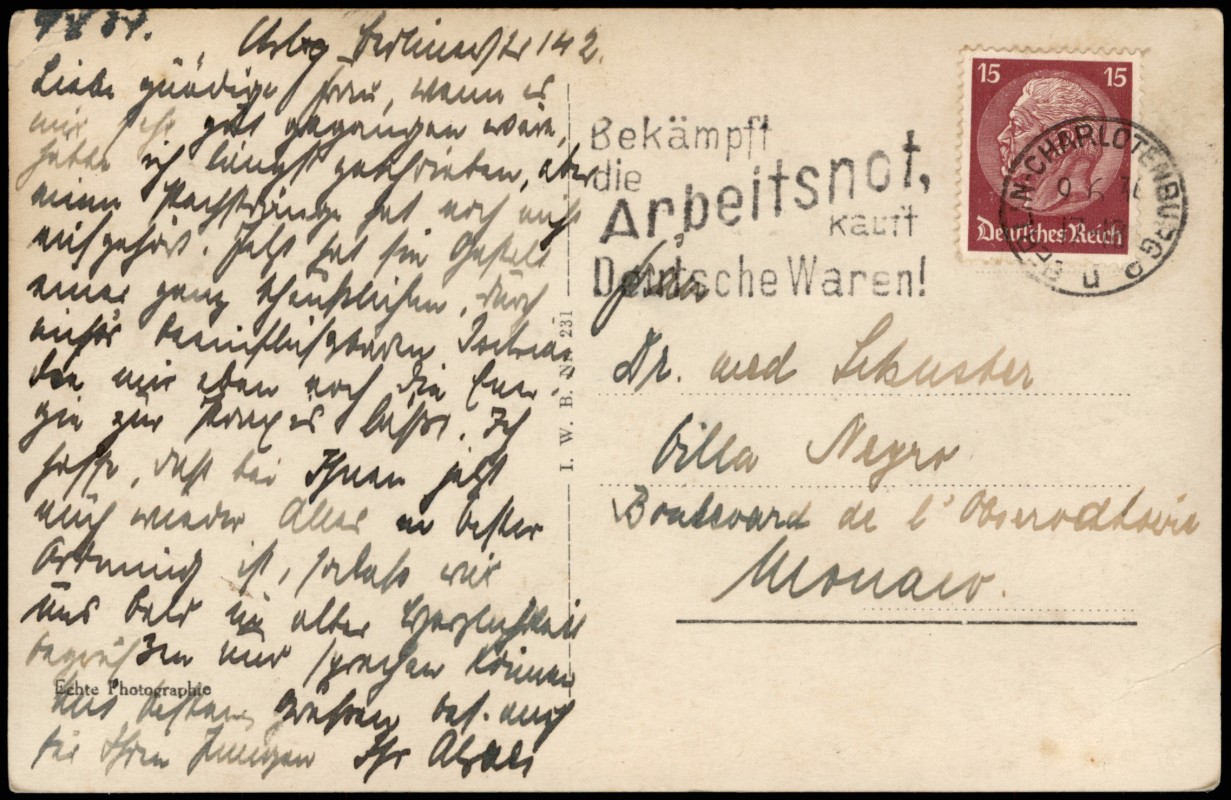 Liebe gnädige Frau, wenn es
mir sehr gut gegangen wäre,
hätte ich längst geschrieben, aber
meine Pechsträhne hat noch nicht
aufgehört. Jetzt hat sie Gestalt
einer ganz scheußlichen, durch
nichts beeinflußbaren
die mir eben noch die Ener-
gie zur Praxis läßt. Ich
hoffe, daß bei Ihnen jetzt
auch wieder Alles in bester
Ordnung ist, sodass wir
uns bald in alter Herzlichkeit
begrüßen und sprechen können
Mit besten Grüßen bes. auch
für Ihren Jungen Ihr
Echte Photographie
I. W. B. 231
Bekämpft
die
Arbeitsnot,
kauft
Deutsche Waren!
15 15
Deutsches Reich
BERLIN-CHARLOTTENBURG
Dr. med Schuster
Villa Negro
Boulevard de l'Observatoire
Monaco.